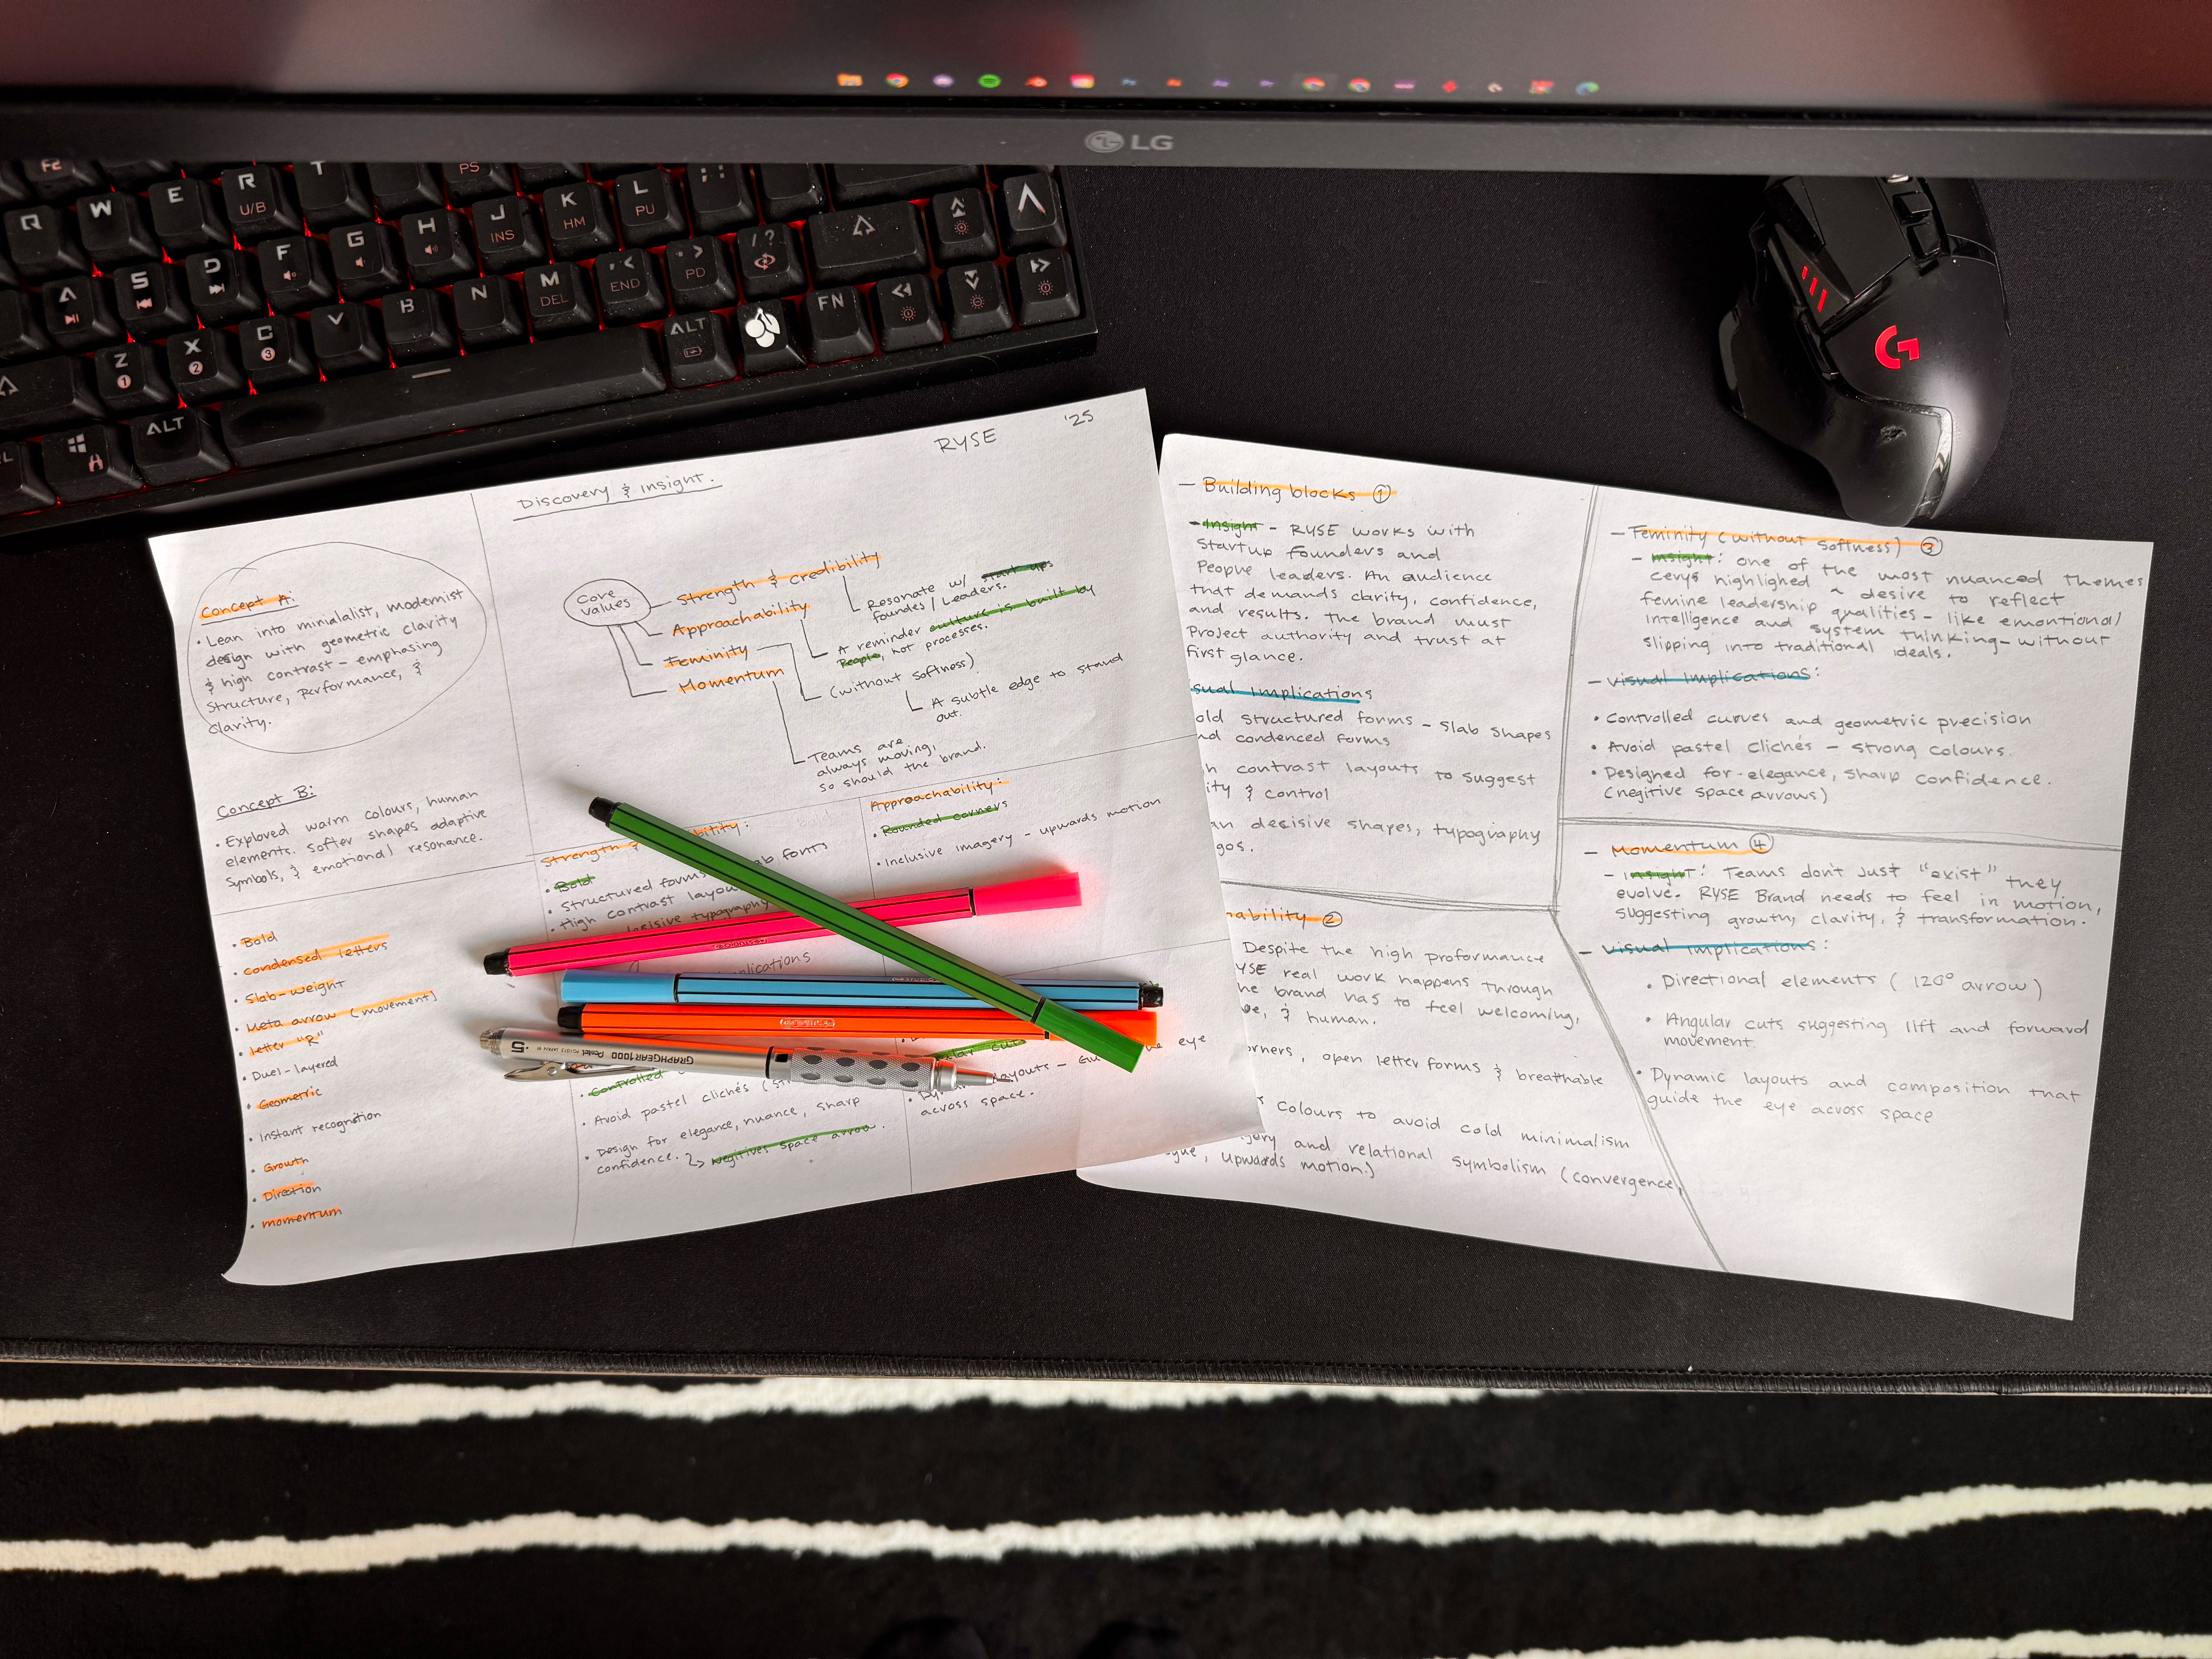 LG
F2
T
PS
Q
W
E
R
U/B
J
INS
K
HM
L
PU
A
S
D
F
G
H
Z
1
X
2
C
3
V
B
N
M
DEL
END
PD
/ ?
ALT
ALT
FN
G
RYSE '25
Discovery & Insight.
Concept A:
• Lean into minialalist, modernist
design with geometric clarity
& high contrast – emphasing
structure, performance, &
clarity.
Concept B:
• Exploved warm colours, human
elements. Softer shapes adaptive
symbols, & emotional resonance.
Core
values
Strength & credibility
Resonate w/ start ups
foundes/Leaders.
Approachability
A reminder culture is built by
People, not processes.
Feminity
(without softness)
A subtle edge to stand
out.
Momentum
Teams are
always moving,
so should the brand.
• Bold
• condensed letters
• Slab-weight
• Meta arrow (movement)
• letter "R"
• Duel-layered
• Geometric
• Instant recognition
• Growth
• Direction
• momentum
Strength &
• Bold
• Structured forms
• High contrast
typography
fonts
Approachability:
• Rounded corners
• Inclusive imagery – upwards motion
• Controlled
• Avoid pastel clichés
• Design for elegance, nuance, sharp
confidence. Negitives space arrow.
eye
across space.
GRAPHGEAR 1000 Pentel
5
– Building blocks 1
– Insight – RYSE works with
Startup founders and
People leaders. An audience
that demands clarity, confidence,
and results. The brand must
Project authority and trust at
first glance.
Implications
structured forms – Slab shapes
condensed forms
contrast layouts to suggest
& control
decisive shapes, typography
2
Despite the high proformance
real work happens through
brand has to feel welcoming,
& human.
, open letter forms & breathable
Colours to avoid cold minimalism
and relational symbolism (convergence,
, upwards motion)
– Feminity (without softness) 3
– Insight: one of the most nuanced themes
cerys highlighed ~ desire to reflect
femine leadership qualities – like emontional
intelligence and system thinking – without
slipping into traditional ideals.
– Visual Implications:
• Controlled curves and geometric precision
• Avoid pastel clichés – strong colours.
• Designed for-elegance, sharp confidence.
(negitive space arrows)
– Momentum 4
– Insight: Teams don't just "exist" they
evolve. RYSE Brand needs to feel in motion,
suggesting growth, clarity, & transformation.
– Visual Implications:
• Directional elements (120° arrow)
• Angular cuts suggesting lift and forward
movement.
• Dynamic layouts and composition that
guide the eye across space